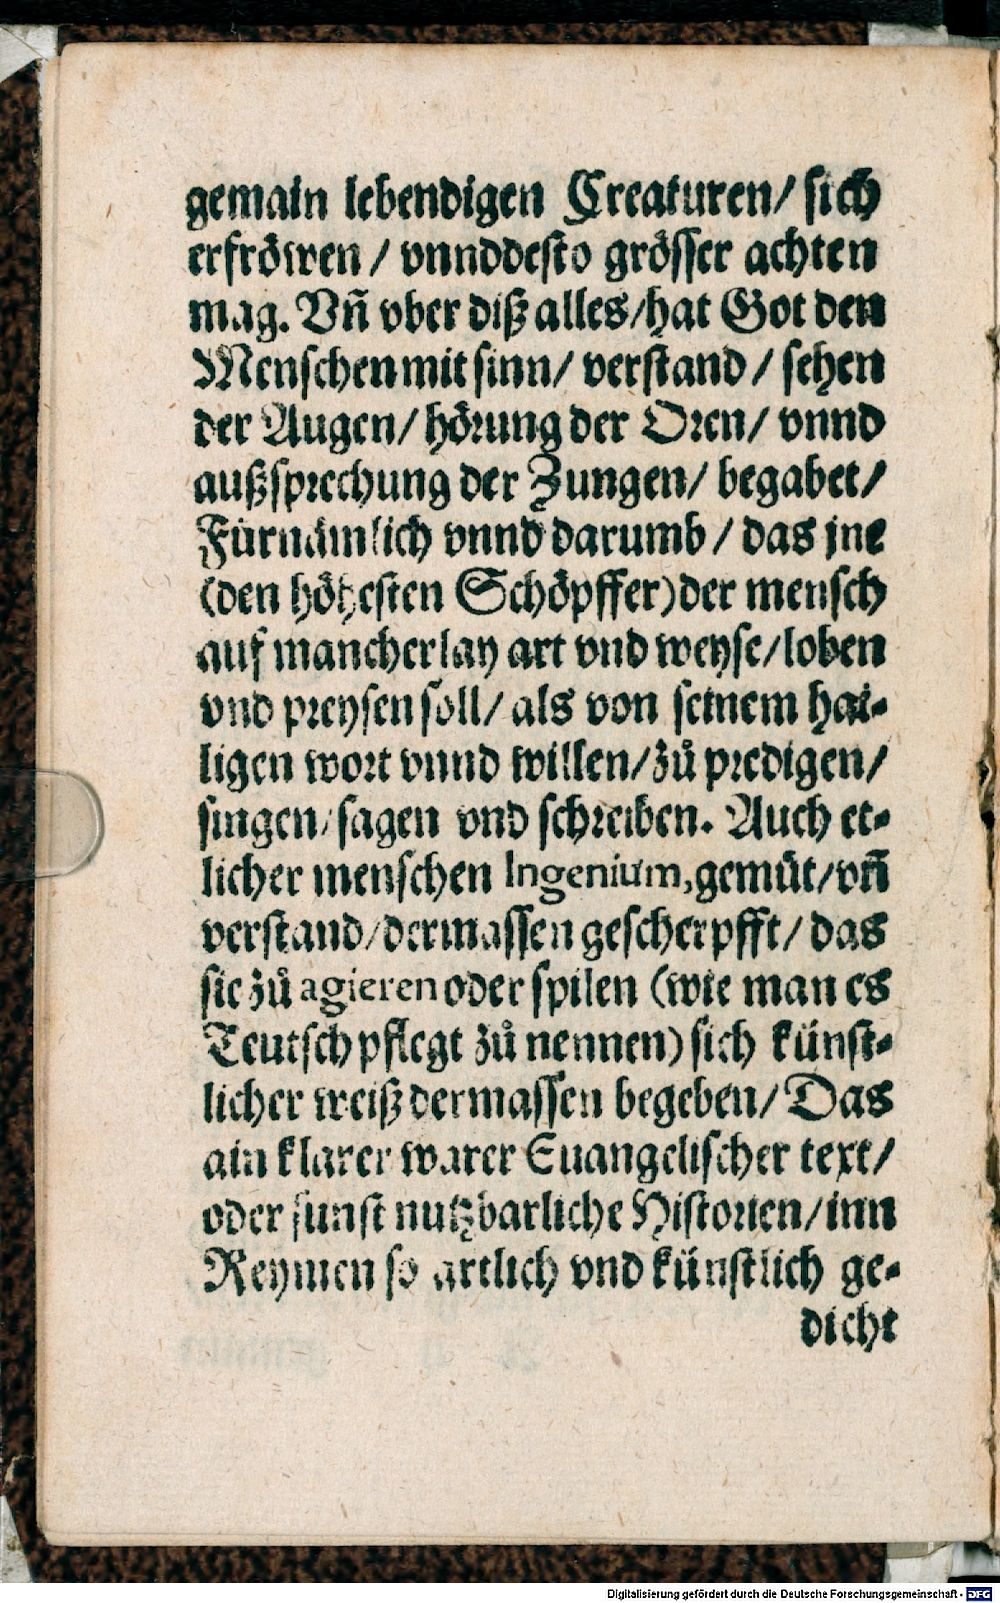 gemain lebendigen Creaturen/ sich
erfröwen / vnnddesto grösser achten
mag. Vñ vber diß alles/hat Got den
Menschen mit sinn/ verstand / sehen
der Augen/ hörung der Oren/ vnnd
außsprechung der Zungen/ begabet/
Fürnämlich vnnd darumb / das jne
(den höhesten Schöpffer) der mensch
auf mancherlay art vnd weyse/loben
vnd preysen soll/ als von seinem hai-
ligen wort vnnd willen/zů predigen/
singen/sagen vnd schreiben. Auch et-
licher menschen Ingenium,gemüt/vñ
verstand/dermassen gescherpfft/ das
sie zů agieren oder spilen (wie man es
Teutsch pflegt zů nennen) sich künst-
licher weiß dermassen begeben/ Das
ain klarer warer Euangelischer text/
oder sunst nutzbarliche Historien/inn
Reymen so artlich vnd künstlich ge-
dicht
Digitalisierung gefördert durch die Deutsche Forschungsgemeinschaft - DFG